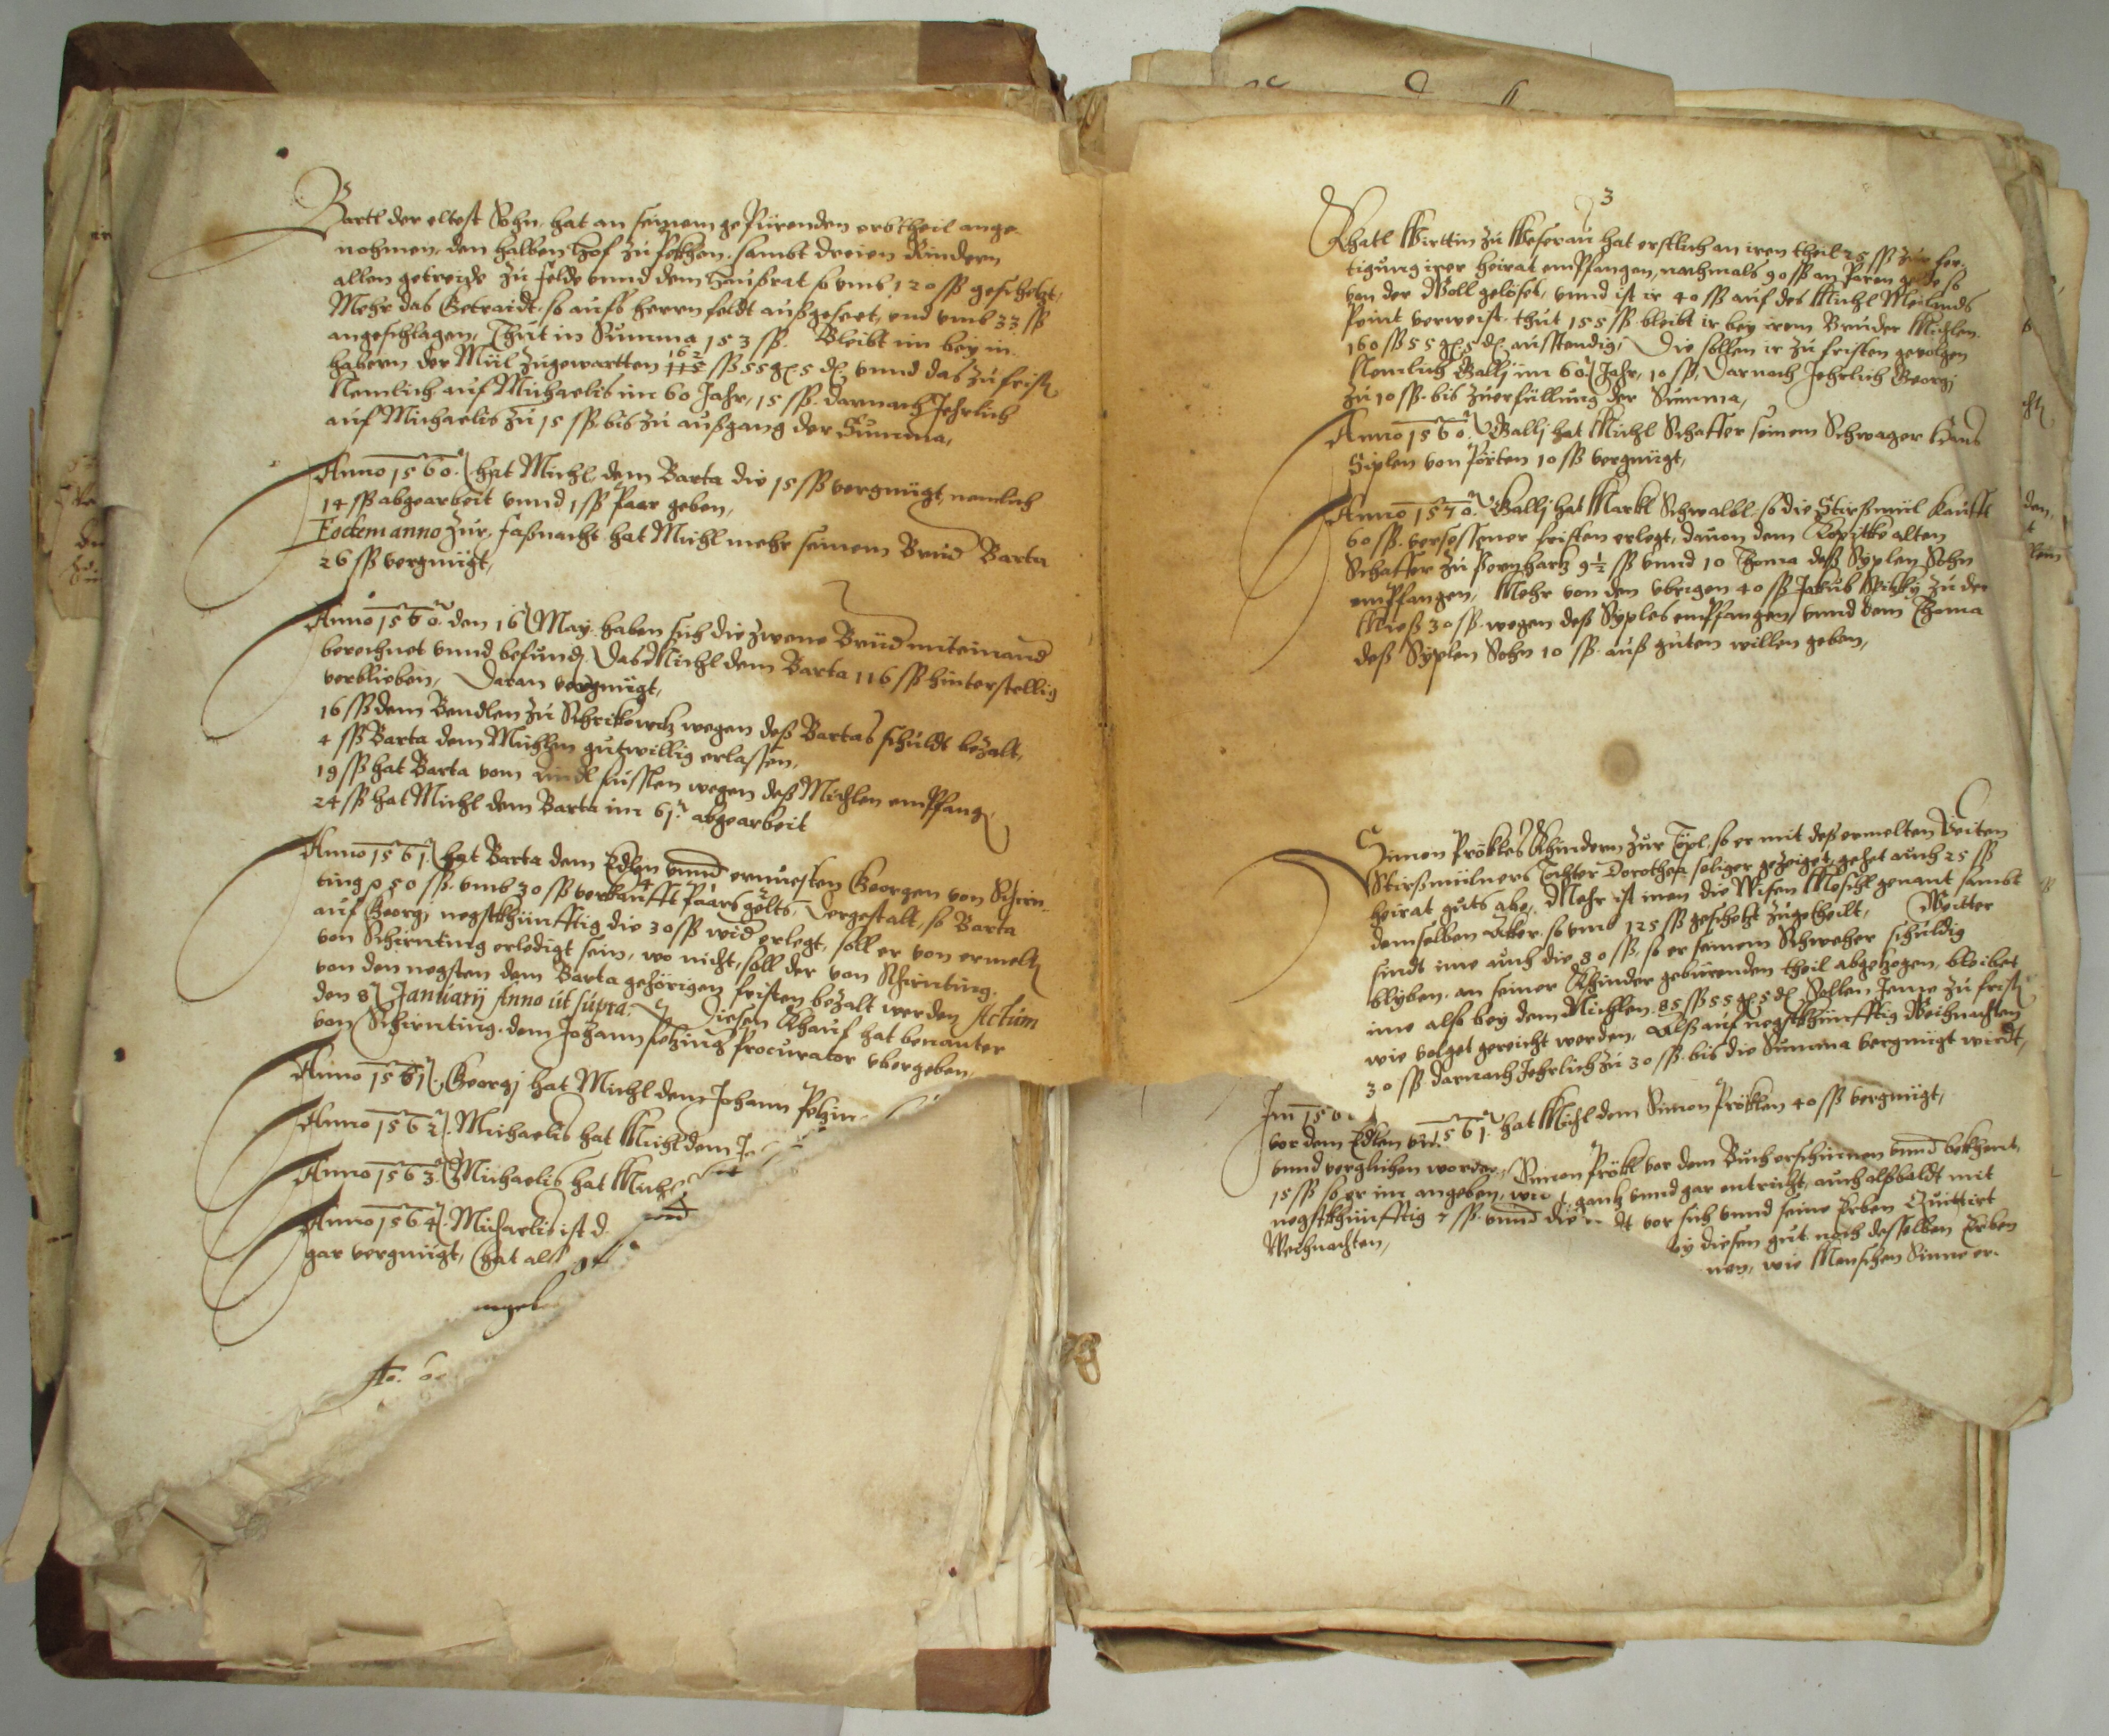 Bartl der eltest Sohn, hat an seinem gepürenden erbtheil ange-
nohmen, den halben Hof zu sambt dreien Rindern
allen getreide zu felde vnnd dem Haußrat so vmb 120 ßß geschetzt,
Mehr das Getraidt, so aufs herrn feldt außgeseet, vnd vmb 33 ßß
angeschlagen, Thut in Summa 153 ßß. Bleibt im bey in-
habern der Mül zugewartten 162 ßß 55 g 5 d. vnnd das zu frist
Nemlich auf Michaelis im 60 Jahr, 15 ßß. darnach Jehrlich
auf Michaelis zu 15 ßß. bis zu außgang der Summa,
Anno 1560. hat Michl, dem Barta die 15 ßß vergnügt, nemlich
14 ßß abgearbeit vnnd 1 ßß Paar geben,
Eodem anno zur faßnacht hat Michl mehr seinem Brud Barta
26 ßß vergnügt,
Anno 1560. den 16 May. haben sich die zwene Brüd miteinand
berechnet vnnd befund, Das Michl dem Barta 116 ßß hinterstellig
verblieben, Daran vergnügt,
16 ßß dem Bendlen zu wegen deß Bartas schuldt bezalt,
4 ßß Barta dem Michlen gutwillig erlassen,
19 ßß hat Barta vom wegen deß Michlen empfang
24 ßß hat Michl dem Barta im 61. abgearbeit
Anno 1561. hat Barta dem Edlen vnnd ernuesten Georgen von Schirn-
ting 50 ßß. vmb 30 ßß verkaufft paars gelts, Dergestalt, so Barta
auf Georgj negstkhünfftig die 30 ßß wid erlegt, soll er von ermelt
von Schirnting erledigt sein, wo nicht, soll der von Schirnting.
von den negsten dem Barta gehörigen fristen bezalt werden Actum
den 8 Januarij Anno ut supra. Diesen Khauf hat benanter
von Schirnting. dem Johann Pelzing Procurator vbergeben,
Anno 1561. Georgj hat Michl dem Johann
Anno 1562. Michaelis hat Michl dem
Anno 1563. Michaelis hat Michl
Anno 1564. Michaelis ist d
gar vergnügt, hat als
3
Khatl Wirttin zu hat erstlich an iren theil 25 ßß zur fer-
tigung irer heirat empfangen, nachmals 90 ßß an Paren gelde so
von der Woll gelöset, vnnd ist ir 40 ßß auf des Michl
Point verweist. thut 155 ßß. bleibt ir bey irem Bruder Michlen.
160 ßß 55 g 5 d. ausstendig, Die sollen ir zu fristen gevolgen
Nemlich Gallj im 60. Jahr, 10 ßß, Darnach Jehrlich Georgj
zu 10 ßß. bis zu erfüllung der Summa,
Anno 1560. Gallj hat Michl Schaffer seinem Schwager Hans
Siplen von 10 ßß vergnügt,
Anno 1570. Gallj hat Markl Schwalbl, so die Stirßmül kaufft
60 ßß. versessener fristen erlegt, dauon dem alten
Schaffer zu 9½ ßß vnnd 10 Thoma deß Syplen Sohn
empfangen, Mehr von den vbrigen 40 ßß Jakub zu der
Mieß 30 ßß. wegen deß Syples empfangen, vnnd dem Thoma
deß Syplen Sohn 10 ßß. auß guten willen geben,
Simon Prökles Khindern zur Töpl, so er mit deß ermelten Veiten
Stirßmülners Tochter Dorothea seliger gezeiget, gehet auch 25 ßß
heirat guts abe, Mehr ist inen die Wisen genant sambt
demselben Acker. so vmb 125 ßß geschetzt zugetheilt, Weitter
sindt ime auch die 80 ßß. so er seinem Schweher schuldig
blyben. an seiner Khinder gebürenden theil abgezogen, bleibet
ime also bey dem Michlen. 85 ßß 55 g 5 d. Sollen Jeme zu frist
wie volget gereicht werden, Alß auf negstkhünfftig Weihnachten
30 ßß. darnach Jehrlich zu 30 ßß. bis die Summa vergnügt wirdt,
1561. hat Michl dem Simon Pröklen 40 ßß vergnügt,
vor dem Edlen
vnnd verglichen worden Simon Prökl vor dem Buch erschinnen vnnd bekhent,
15 ßß so er im angeben, gantz vnnd gar entricht, auch alßbaldt mit
negstkhünfftig 7 ßß. vnnd die vor sich vnnd seine Erben Quittirt
Weihnachten, diesen gut noch desselben Erben
wie Menschen Sinne er-